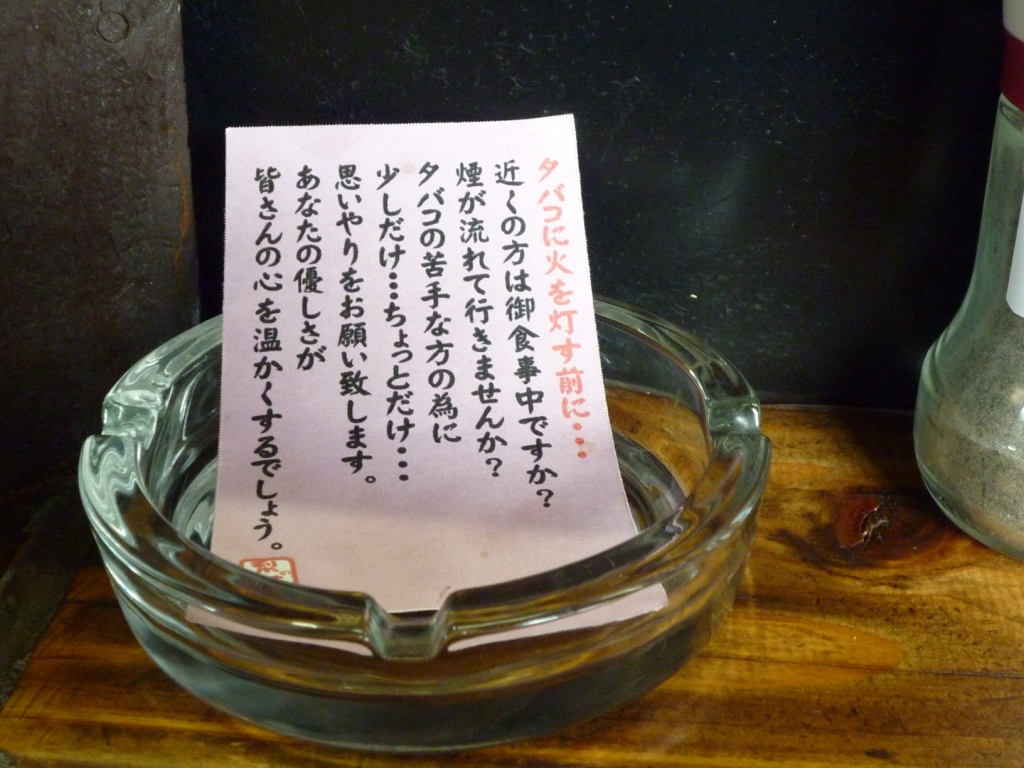 タバコに火を灯す前に・・・
近くの方は御食事中ですか?
煙が流れて行きませんか?
タバコの苦手な方の為に
少しだけ・・・ちょっとだけ・・・
思いやりをお願い致します。
あなたの優しさが
皆さんの心を温かくするでしょう。